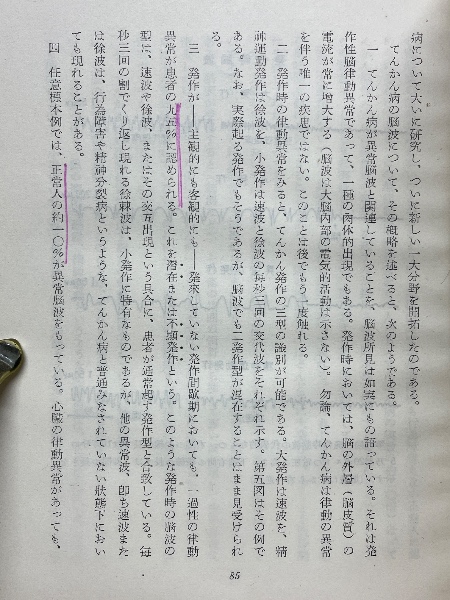 病について大いに研究し、ついに新しい一大分野を開拓したのである。
てんかん病の脳波について、その概略を述べると、次のようである。
一　てんかん病が異常脳波と関連していることを、脳波所見は如実にもの語っている。それは発
作性脳律動異常であって、一種の肉体的出現でもある。発作時においては、脳の外層（脳皮質）の
電流が常に増大する（脳波は大脳内部の電気的活動は示さない）。勿論、てんかん病は律動の異常
を伴う唯一の疾患ではない。このことは後でもう一度触れる。
二　発作時の律動異常をみると、てんかん発作の三型の識別が可能である。大発作は速波を、精
神運動発作は徐波を、小発作は速波と徐波の毎秒三回の交代波をそれぞれ示す。第五図はその例で
ある。なお、実際起る発作でもそうであるが、脳波でも二発作型が混在することはまま見受けられ
る。
三　発作が――主観的にも客観的にも――発来していない発作間歇期においても、一過性の律動
異常が患者の九五％に認められる。これを潜在または不顕発作という。このような発作時の脳波の
型は、速波や徐波、またはその交互出現という具合に、患者が通常起す発作型と合致している。毎
秒三回の割でくり返し現れる徐棘波は、小発作に特有なものであるが、他の異常波、即ち速波また
は徐波は、行為障害や精神分裂病というような、てんかん病と普通みなされていない状態下におい
ても現れることがある。
四　任意標本例では、正常人の約一〇％が異常脳波をもっている。心臓の律動異常があっても、
85